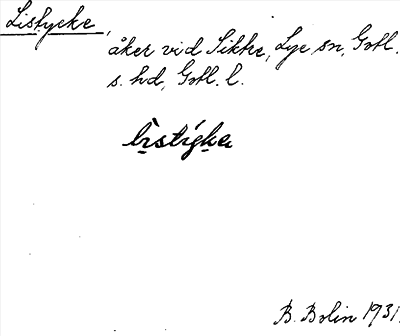 Listycke,
åker vid Sikhre, Lye sn, Gotl.
s. hd, Gotl. l.
lìstýka
B. Bolin 1931.